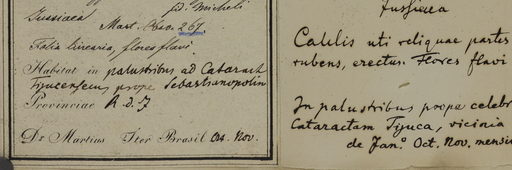 Jussiaea
Mart. Obs. 267.
Folia linearia, flores flavi.
Habitat in palustribus ad Cataract.
Tijucensem prope Sebastianopolin
Provinciae R. d. J
Dr Martius Iter Brasil Oct. Nov.
Jussiaea
Caulis uti reliquae partes
rubens, erectus. Flores flavi
In palustribus prope celebr
Cataractam Tijuca, vicinia
de Jan.º Oct. Nov. mensi